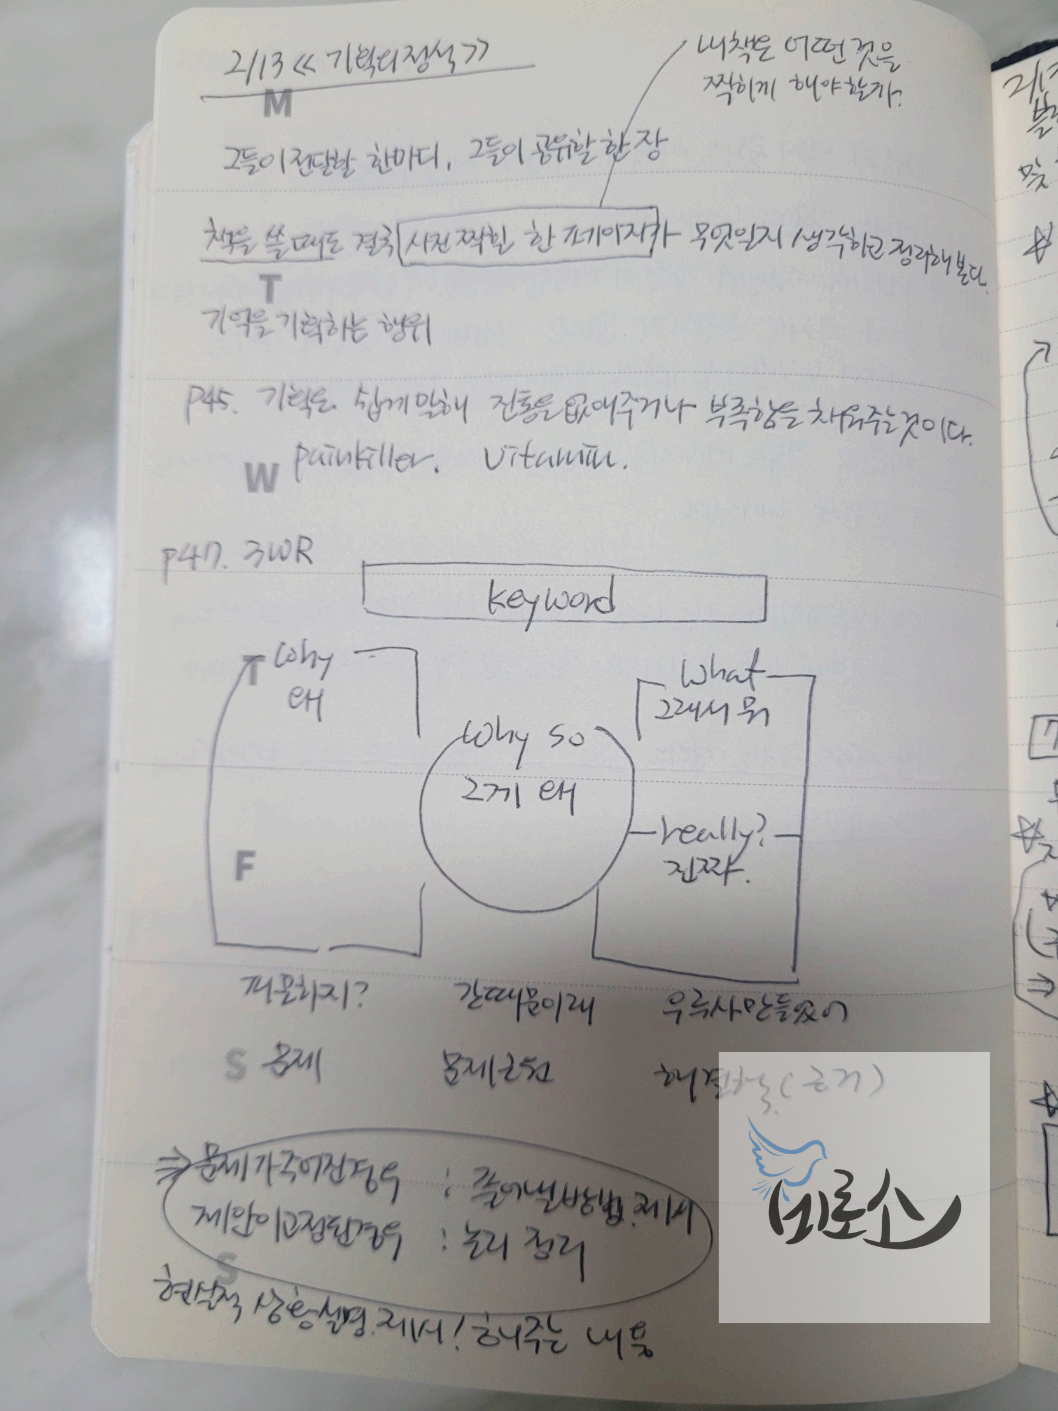 2/13 << 기획의 정석 >>
내책은 어떤 것을
찍히게 해야 할까.
M
그들이 전달할 한마디, 그들이 공유할 한 장
책을 쓸 때도 결국 사진 찍힐 한 페이지가 무엇일지 생각하고 정리해 본다.
T
기억을 기획하는 행위
p45. 기획은 쉽게 말해 진통을 없애주거나 부족함을 채워주는 것이다.
painkiller. vitamin.
W
p47. 3WR
keyword
T
why
왜
what
그래서 뭐
why so
그게 왜
really?
진짜.
F
피곤하지? 간때문이래 우루사 만들었어
S
문제 문제근원 해결책 (근거)
⇒ 문제가 주어진 경우 : 풀어낼 방법. 제시
제안이 고정된 경우 : 논리 정리
S
현실적 상황설명. 제시! 해주는 내용
비로소